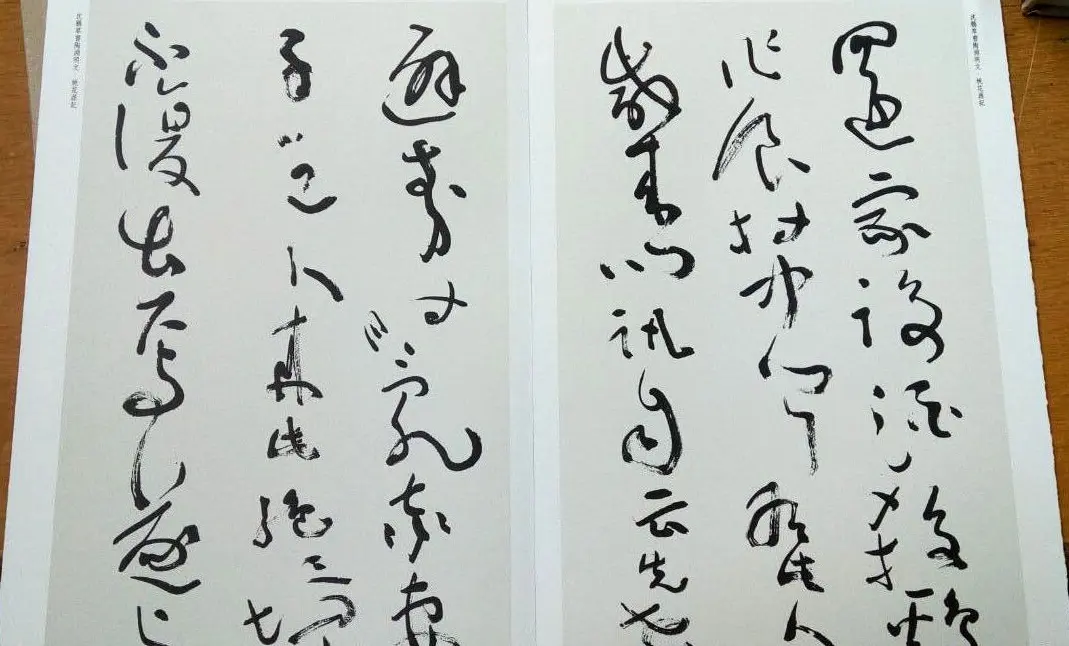 沈鵬草書陶淵明文 桃花源記
還家設酒殺雞
作食村中聞有此人
咸來問訊自云先世
避秦時亂率妻
子邑人來此絕境
不復出焉遂与
沈鵬草書陶淵明文 桃花源記